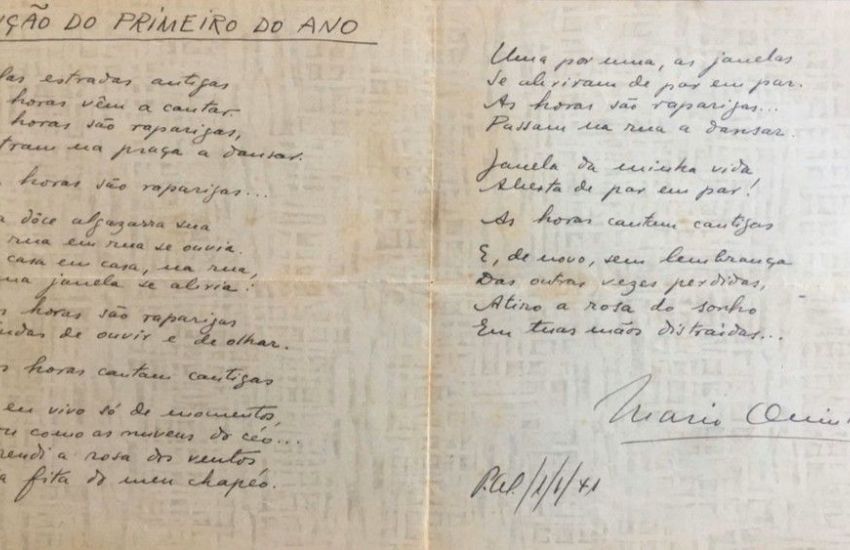 ÇÃO DO PRIMEIRO DO ANO
las estradas antigas
horas vêm a cantar.
horas são raparigas,
tram na praça a dansar.
horas são raparigas...
a dôce algazarra sua
rua em rua se ouvia.
casa em casa, na rua,
ma janela se abria!
s horas são raparigas
ndas de ouvir e de olhar.
s horas cantam cantigas
eu vivo só de momentos,
ou como as nuvens do céo...
rendi a rosa dos ventos
a fita do meu chapéo.
Uma por uma, as janelas
Se abriram de par em par.
As horas são raparigas...
Passam na rua a dansar.
Janela da minha vida
Aberta de par em par!
As horas cantam cantigas
E, de novo, sem lembrança
Das outras vezes perdidas,
Atiro a rosa do sonho
Em tuas mãos distraidas...
Mario Quin
P.al./1/1/41